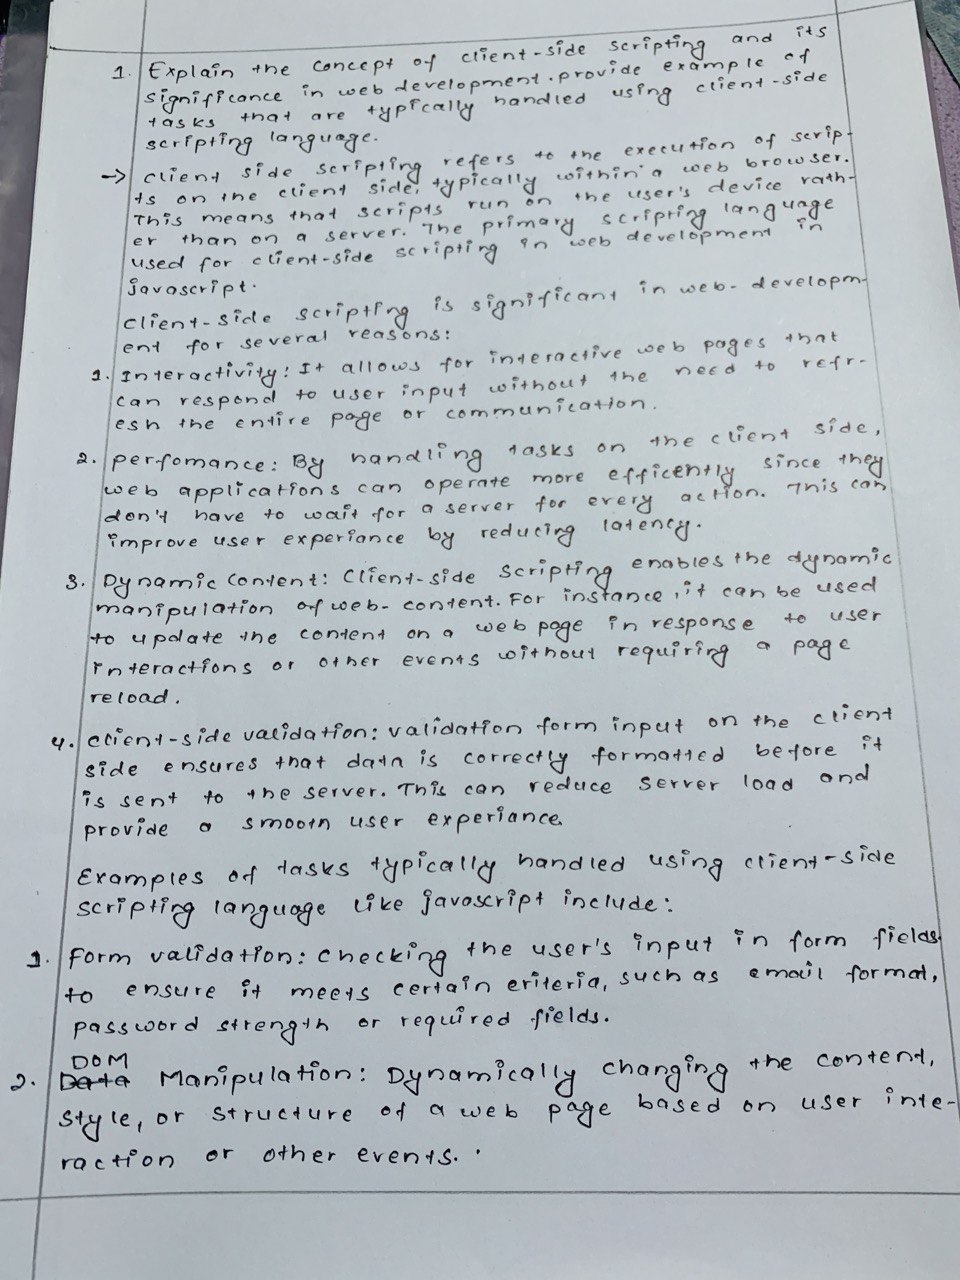 1. Explain the concept of client-side scripting and its
significance in web development. provide example of
tasks that are typically handled using client-side
scripting language.
→ client side scripting refers to the execution of scrip-
ts on the client side, typically within a web browser.
This means that scripts run on the user's device rath-
er than on a server. The primary scripting language
used for client-side scripting in web development in
javascript.
client-side scripting is significant in web-developm-
ent for several reasons:
1. Interactivity: It allows for interactive web pages that
can respond to user input without the need to refr-
esh the entire page or communication.
2. perfomance: By handling tasks on the client side,
web applications can operate more efficently since they
don't have to wait for a server for every action. This can
improve user experiance by reducing latency.
3. Dynamic content: Client-side scripting enables the dynamic
manipulation of web-content. For instance, it can be used
to update the content on a web page in response to user
interactions or other events without requiring a page
reload.
4. client-side validation: validation form input on the client
side ensures that data is correctly formatted before it
is sent to the server. This can reduce server load and
provide a smooth user experiance
Examples of tasks typically handled using client-side
scripting language like javascript include:
1. Form validation: checking the user's input in form fields
to ensure it meets certain criteria, such as email format,
password strength or required fields.
DOM
2. Data Manipulation: Dynamically changing the content,
style, or structure of a web page based on user inte-
raction or other events.